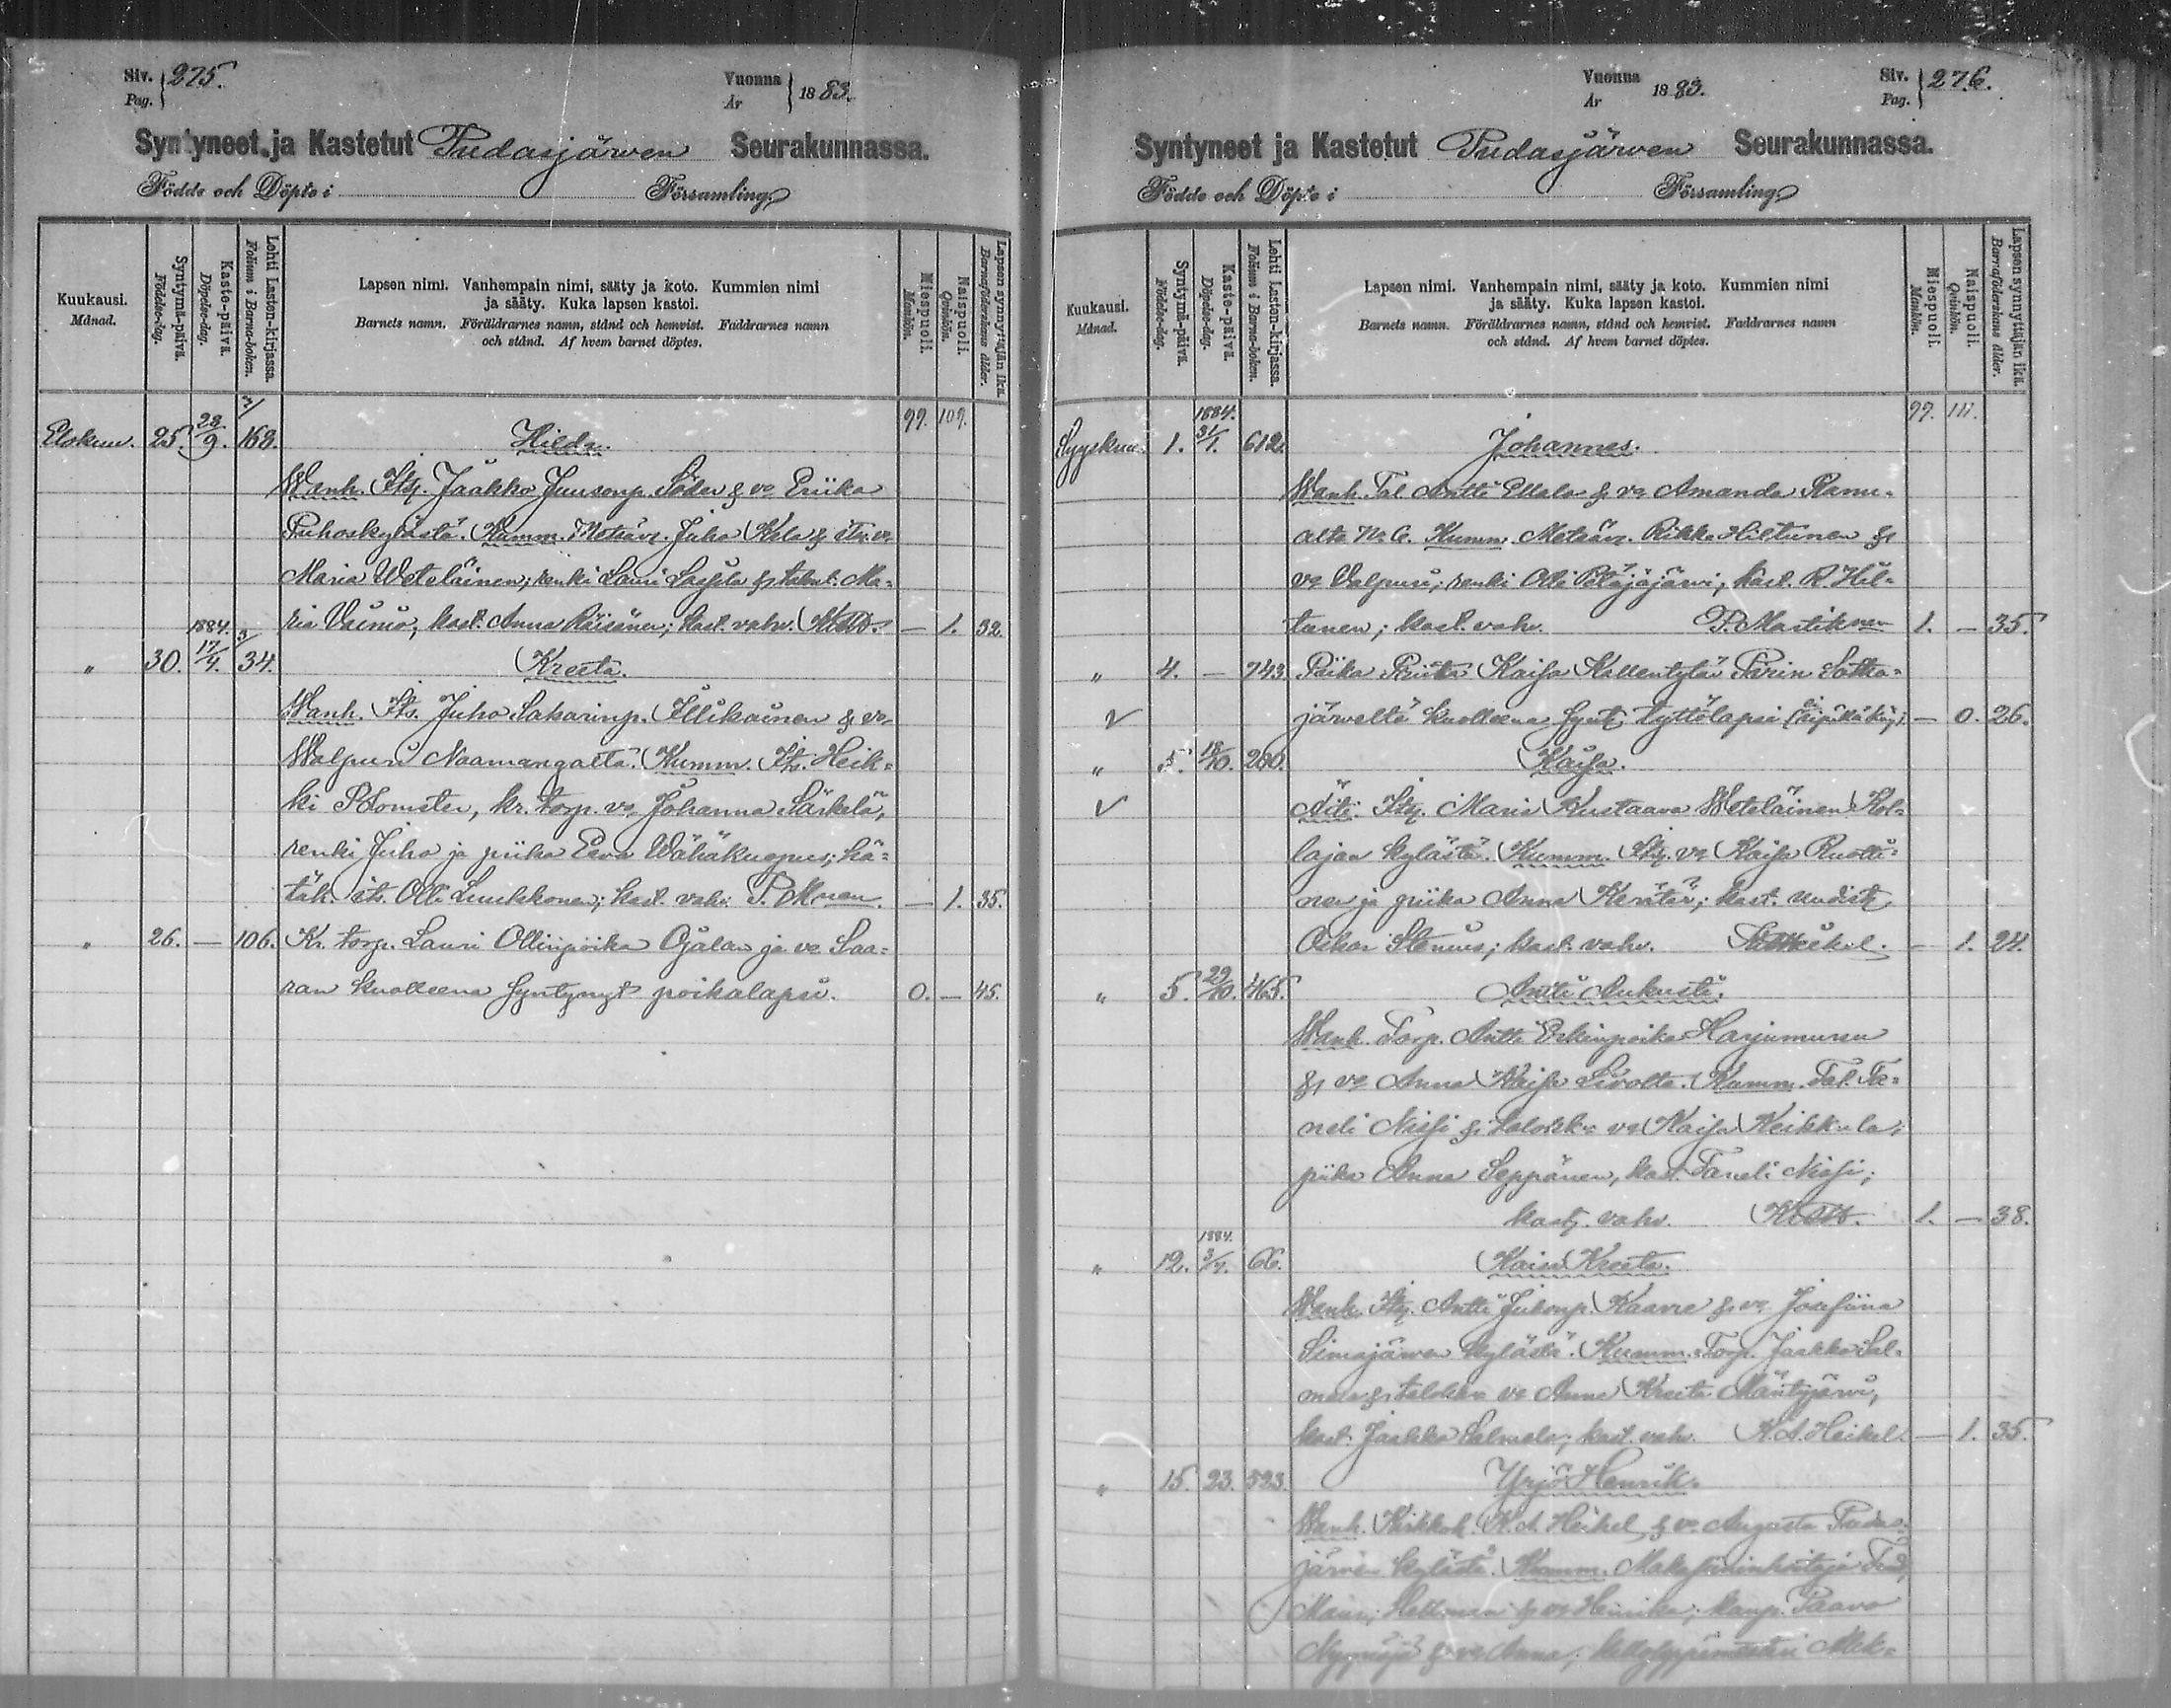 Siv. Pag. 275.
Vuonna År 1883.
Syntyneet ja Kastetut Pudasjärven Seurakunnassa.
Födde och Döpte i Församling
Kuukausi. Månad.
Syntymä-päivä. Födelse-dag.
Kaste-päivä. Döpelse-dag.
Lehti Lasten-kirjassa. Folium i Barna-boken.
Lapsen nimi. Vanhempain nimi, sääty ja koto. Kummien nimi
ja sääty. Kuka lapsen kastoi.
Barnets namn. Föräldrarnes namn, stånd och hemvist. Faddrarnes namn
och stånd. Af hvem barnet döptes.
Miespuoli. Mankön.
Naispuoli. Qvinkön.
Lapsen synnyttäjän ikä. Barnaföderskans ålder.
99. 109.
Elokuu. 25. 23/9. 168. Hilda.
Wanh. Itq. Jaakko Juusonp. Söder & vo Eriika
Puhoskylästä. Kumm. Metsäv. Juho Kela & itv. vo
Maria Weteläinen; renki Lauri Lassila & Ma-
ria Vainio, kast. Anna Räisänen; kast. vahv.
— 1. 32.
1884.
" 30. 17/4. 34. Kreeta.
Wanh. Its. Juho Sakarinp. Illikainen & vo
Walpuri Naamangalta. Kumm. Its. Heik-
ki Blomster, kr. torp. vo Johanna Särkelä,
renki Juho ja piika Eeva Wähäkuopus; hä-
täk. its. Olli Luukkonen; kast. vahv. P. Mnen. — 1. 35.
" 26. — 106. Kr. torp. Lauri Ollinpoika Ojalan ja vo Saa-
ran kuolleena syntynyt poikalapsi. 0. — 45.
Vuonna År 1883.
Siv. Pag. 276.
Syntyneet ja Kastetut Pudasjärven Seurakunnassa.
Födde och Döpte i Församling
Kuukausi. Månad.
Syntymä-päivä. Födelse-dag.
Kaste-päivä. Döpelse-dag.
Lehti Lasten-kirjassa. Folium i Barna-boken.
Lapsen nimi. Vanhempain nimi, sääty ja koto. Kummien nimi
ja sääty. Kuka lapsen kastoi.
Barnets namn. Föräldrarnes namn, stånd och hemvist. Faddrarnes namn
och stånd. Af hvem barnet döptes.
Miespuoli. Mankön.
Naispuoli. Qvinkön.
Lapsen synnyttäjän ikä. Barnaföderskans ålder.
1884. 99. 111.
Syyskuu. 1. 31/1. 612. Johannes.
Wanh. Tal. Antti Ellala & vo Amanda Panu-
alta No 6. Kumm. Metsäv. Rikko Hiltunen &
vo Valpuri; renki Olli Petäjäjärvi, kast. R. Hil-
tunen; kast. vahv. P. Mustiknen 1. — 35.
" 4. — 743. Piika Kaisa Kallentytär Pirin Sotka-
järveltä kuolleena synt. tyttölapsi — 0. 26.
" 5. 18/10. 200. Kaisa.
Äiti. Itq. Maria Kustaava Weteläinen Kol-
lajan kylästä. Kumm. Itq. vo Kaisa Ruotti-
nen ja piika Anna Keritär; kast. uudist.
Oskar Stenius; kast. vahv. — 1. 24.
" 5. 29/10. 465. Antti Aukusti.
Wanh. Torp. Antti Erkinpoika Harjumuren
& vo Anna Kaisa Livolta. Kumm. Tal. Ta-
neli Nissi & talokk. vo Kaisa Keikkala;
piika Anna Seppänen, kast. Taneli Nissi;
kast. vahv. 1. — 38.
1884.
" 12. 3/7. 66. Kaisa Kreeta.
Wanh. Itq. Antti Juhonp. Kaarre & vo Josefiina
Simojärven kylästä. Kumm. Torp. Jaakko Sal-
mela & talokk. vo Anna Kreeta Mäntyjärvi,
kast. Jaakko Salmela; kast. vahv. K. A. Heikel. — 1. 35.
" 15. 23. 523. Yrjö Henrik.
Wanh. Kirkkoh. K. A. Heikel & vo Augusta Pudas-
järven kylästä. Kumm. Makasiininhoitaja
Hellman & vo Henrika; kaup. Paavo
& vo Anna;